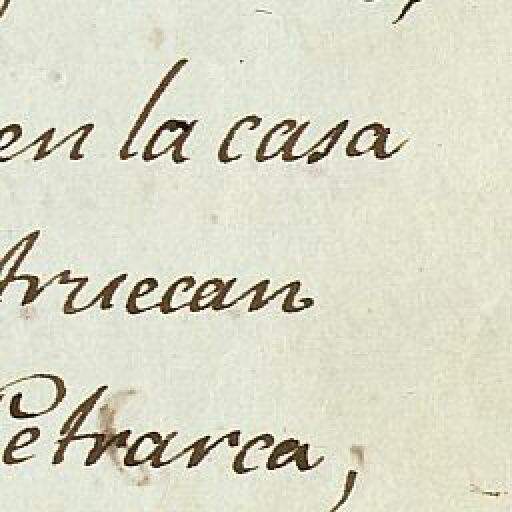 en la casa
truecan
Petrarca,